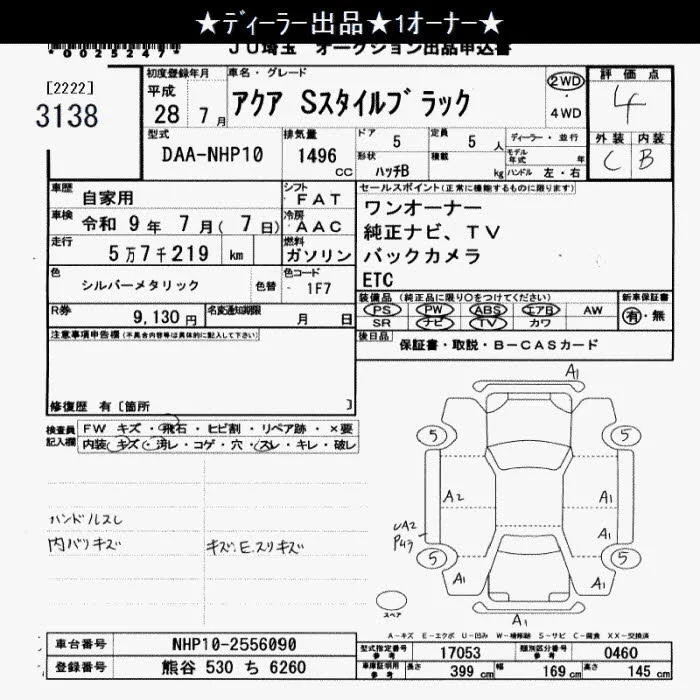 ★ディーラー出品★1オーナー★
*0025247*
JU埼玉 オークション出品申込書
[2222]
3138
初度登録年月
平成
28 年 7月
車名・グレード
アクア Sスタイルブラック
2WD
・
4WD
評価点
4
外装 内装
C B
型式
DAA-NHP10
排気量
1496
CC
ドア 5
定員 5 人
ディーラー・並行
モデル年式 年
形状 ハッチB
積載 kg
ハンドル 左・右
車歴
自家用
シフト
FAT
車検
令和 9年 7月( 7日)
冷房
AAC
走行
5万7千219 km
燃料
ガソリン
色
シルバーメタリック
色替
色コード
1F7
R券
9,130円
名変通知期限
月 日
セールスポイント(正常に機能するものに限ります)
ワンオーナー
純正ナビ、TV
バックカメラ
ETC
装備品(純正品に限り○をつけてください)
PS PW ABS エアB AW
SR ナビ TV カワ
新車保証書
有・無
後日品
保証書・取説・B-CASカード
注意事項申告欄(不具合内容等は具体的に記入して下さい)
修復歴 有〔箇所 〕
検査員記入欄
FW キズ・飛石・ヒビ割・リペア跡・×要
内装・キズ・汚レ・コゲ・穴・スレ・キレ・破レ
ハンドルスレ
内バリキズ
キズ.E.スリキズ
A1
5 5
A2 A1
UA2 A1
P43
5 5
A1 A1
A1
スペア
A-キズ E-エクボ U-凹み W-補修跡 S-サビ C-腐食 XX-交換済
車台番号
NHP10-2556090
登録番号
熊谷 530 ち 6260
型式指定番号 参考
17053
類別区分番号 参考
0460
車庫証明用 参考
長さ 399 cm
幅 169 cm
高さ 145 cm